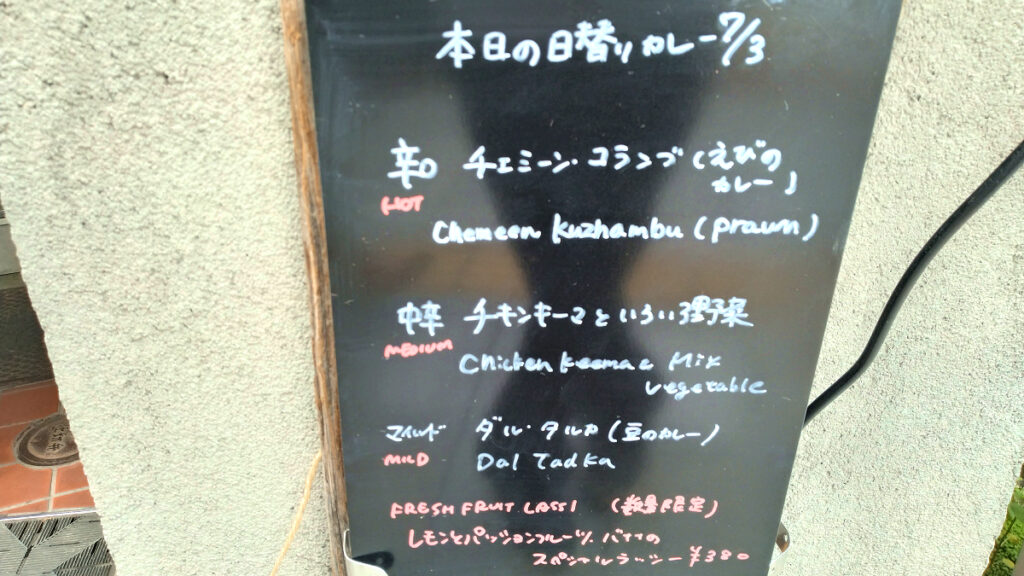 本日の日替りカレー 7/3
辛口 チェミーン・コランブ (えびの
カレー)
HOT
Chemeen Kuzhambu (prawn)
中辛 チキンキーマといろいろ野菜
MEDIUM
Chicken Keema & Mix
vegetable
マイルド ダル・タルカ (豆のカレー)
MILD Dal Tadka
FRESH FRUIT LASSI (数量限定)
レモンとパッションフルーツ、バナナの
スペシャルラッシー ¥380